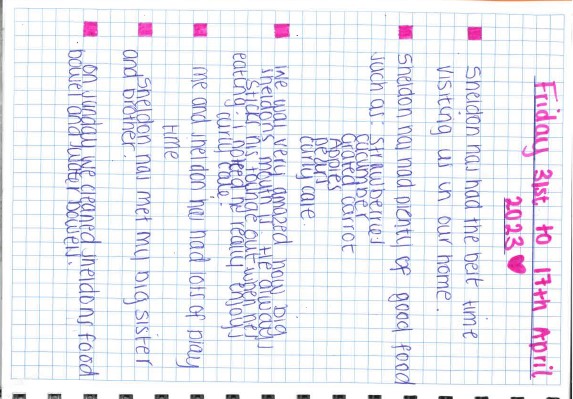 Friday 31st to 17th April
2023
Sheldon has had the best time
visiting us in our home.
Sheldon has had plenty of good food
such as: strawberries
cucumber
grated carrot
Apples
pears
curly cale.
We was very amazed how big
sheldons mouth is He always
Stick his tounge out when he's
eating. I noticed he really enjoys
curly cale.
me and sheldon has had lots of play
time
Sheldon has met my big sister
and brother.
On sunday we cleaned sheldons food
bowel and water bowels.